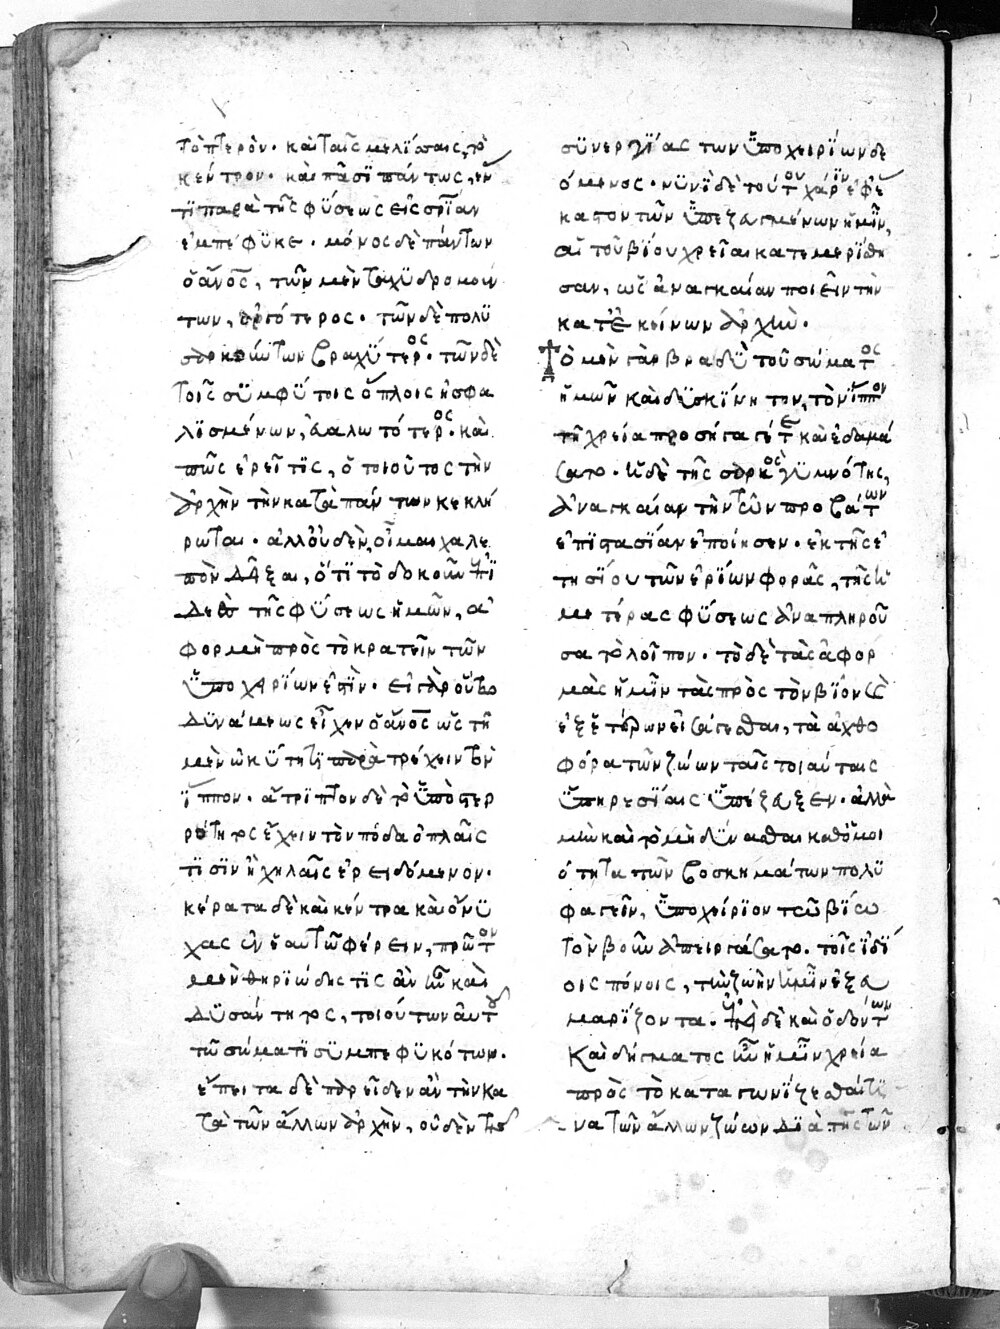 τὸ πτερὸν· καὶ ταῖς μελίσσαις, τὸ
κέντρον· καὶ πᾶσϊ πάντως, ἕν
τι παρὰ τῆς φύσεως εἰς σρίαν
ἐμπέφυκε· μόνος δὲ πάντων
ὁ ἄνος, τῶν μὲν ταχϋδρομούν
των, ἀργότερος· τῶν δὲ πολϋ
σαρκούντων βραχϋτερος· τῶν δὲ
τοῖς συμφύτοις ὅπλοις ἠσφα
λϊσμένων, εὐαλωτότερος· καὶ
πῶς ἐρεῖ τϊς, ὁ τοιοῦτος τὴν
ἀρχὴν τὴν κατὰ πάντων κεκλή
ρωται· ἀλλ' οὐδὲν οἶμαι χαλε
πὸν δεῖξαι, ὅτϊ τὸ δοκοῦν ἐπϊ
δεὲς τῆς φϋσεως ἡμῶν, ἀ
φορμὴ πρὸς τὸ κρατεῖν τῶν
ὑποχειρίων ἐστὶν· εἰ γὰρ οὕτω
δϋνάμεως εἶχεν ὁ ἄνος ὡς τῇ
μὲν ὠκϋτητι παρατρέχειν τὸν
ἵππον· ἄτριπτον δὲ τὸ ὑπὸ στερ
ρότητος ἔχειν τὸν πόδα ὁπλαῖς
τισϊν ἢ χηλαῖς ἐρειδόμενον·
κέρατα δὲ καὶ κέντρα καὶ ὄνϋ
χας ἐν ἑαυτῶ φέρειν, πρῶτον
μὲν θηριώδης τϊς ἂν ἦν καὶ
δϋσάντητος, τοιούτων αὐτοῦ
τῶ σώματϊ συμπεφϋκότων·
ἔπειτα δὲ παρεῖδεν ἂν τὴν κα
τὰ τῶν ἄλλων ἀρχὴν, οὐδὲν τῆς
σϋνεργίας τῶν ὑποχειρίων δε
όμενος· νϋνὶ δὲ τούτου χάριν ἐφ' ἕ
καστον τῶν ὑπεζευγμένων ἡμῖν,
αἱ τοῦ βίου χρεῖαι κατεμερίσθη
σαν, ὡς ἀναγκαίαν ποιεῖν τὴν
κατ' ἐκείνων ἀρχὴν·
Τὸ μὲν γὰρ βραδϋ τοῦ σώματος
ἡμῶν καὶ δϋσκίνητον, τὸν ἵππον
τῇ χρεία προσήγαγέ τε καὶ ἐδαμά
σατο· ἡ δὲ τῆς σαρκὸς γϋμνότης,
ἀναγκαίαν τὴν τῶν προβάτων
ἐπιστασίαν ἐποίησεν· ἐκ τῆς ἐ
τησίου τῶν ἐρίων φορᾶς, τῆς ἡ
μετέρας φϋσεως ἀναπληροῦ
σα τὸ λοῖπον· τὸ δὲ τὰς ἀφορ
μὰς ἡμῖν τὰς πρὸς τὸν βίον καὶ
ἐξ ἑτέρων εἰσάγεσθαι, τὰ ἀχθο
φόρα τῶν ζώων ταῖς τοιαύταις
ὑπηρεσίαις ὑπέζευξεν· ἀλλὰ
μὴν καὶ τὸ μὴ δϋνασθαι καθ' ὁμοι
ότητα τῶν βοσκημάτων πολϋ
φαγεῖν, ὑποχείριον τῶ βίω
τὸν βοῦν ἀπειργάσατο· τοῖς ἰδί
οις πόνοις, τὴν ζωὴν ἡμῖν ἐξευ
μαρίζοντα· ἐπεὶ δὲ καὶ ὀδόντων
καὶ δήγματος ἦν ἡμῖν χρεία
πρὸς τὸ καταγωνίζεσθαί τι
να τῶν ἄλλων ζώων διὰ τῆς τῶν